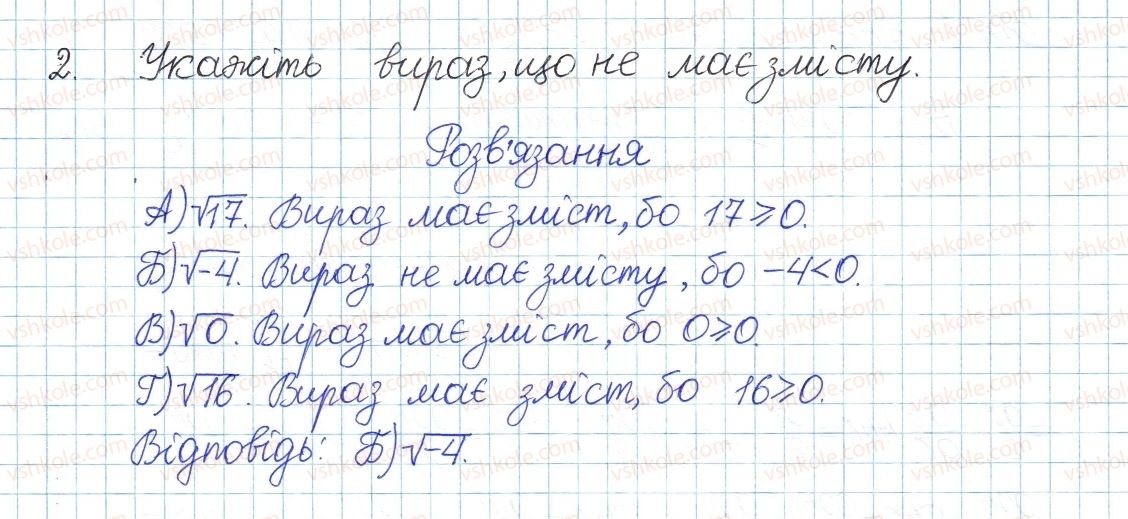 2. Укажіть вираз, що не має змісту.
Розв'язання
А) √17. Вираз має зміст, бо 17 ≥ 0.
Б) √-4. Вираз не має змісту, бо -4 < 0.
В) √0. Вираз має зміст, бо 0 ≥ 0.
Г) √16. Вираз має зміст, бо 16 ≥ 0.
Відповідь: Б) √-4.